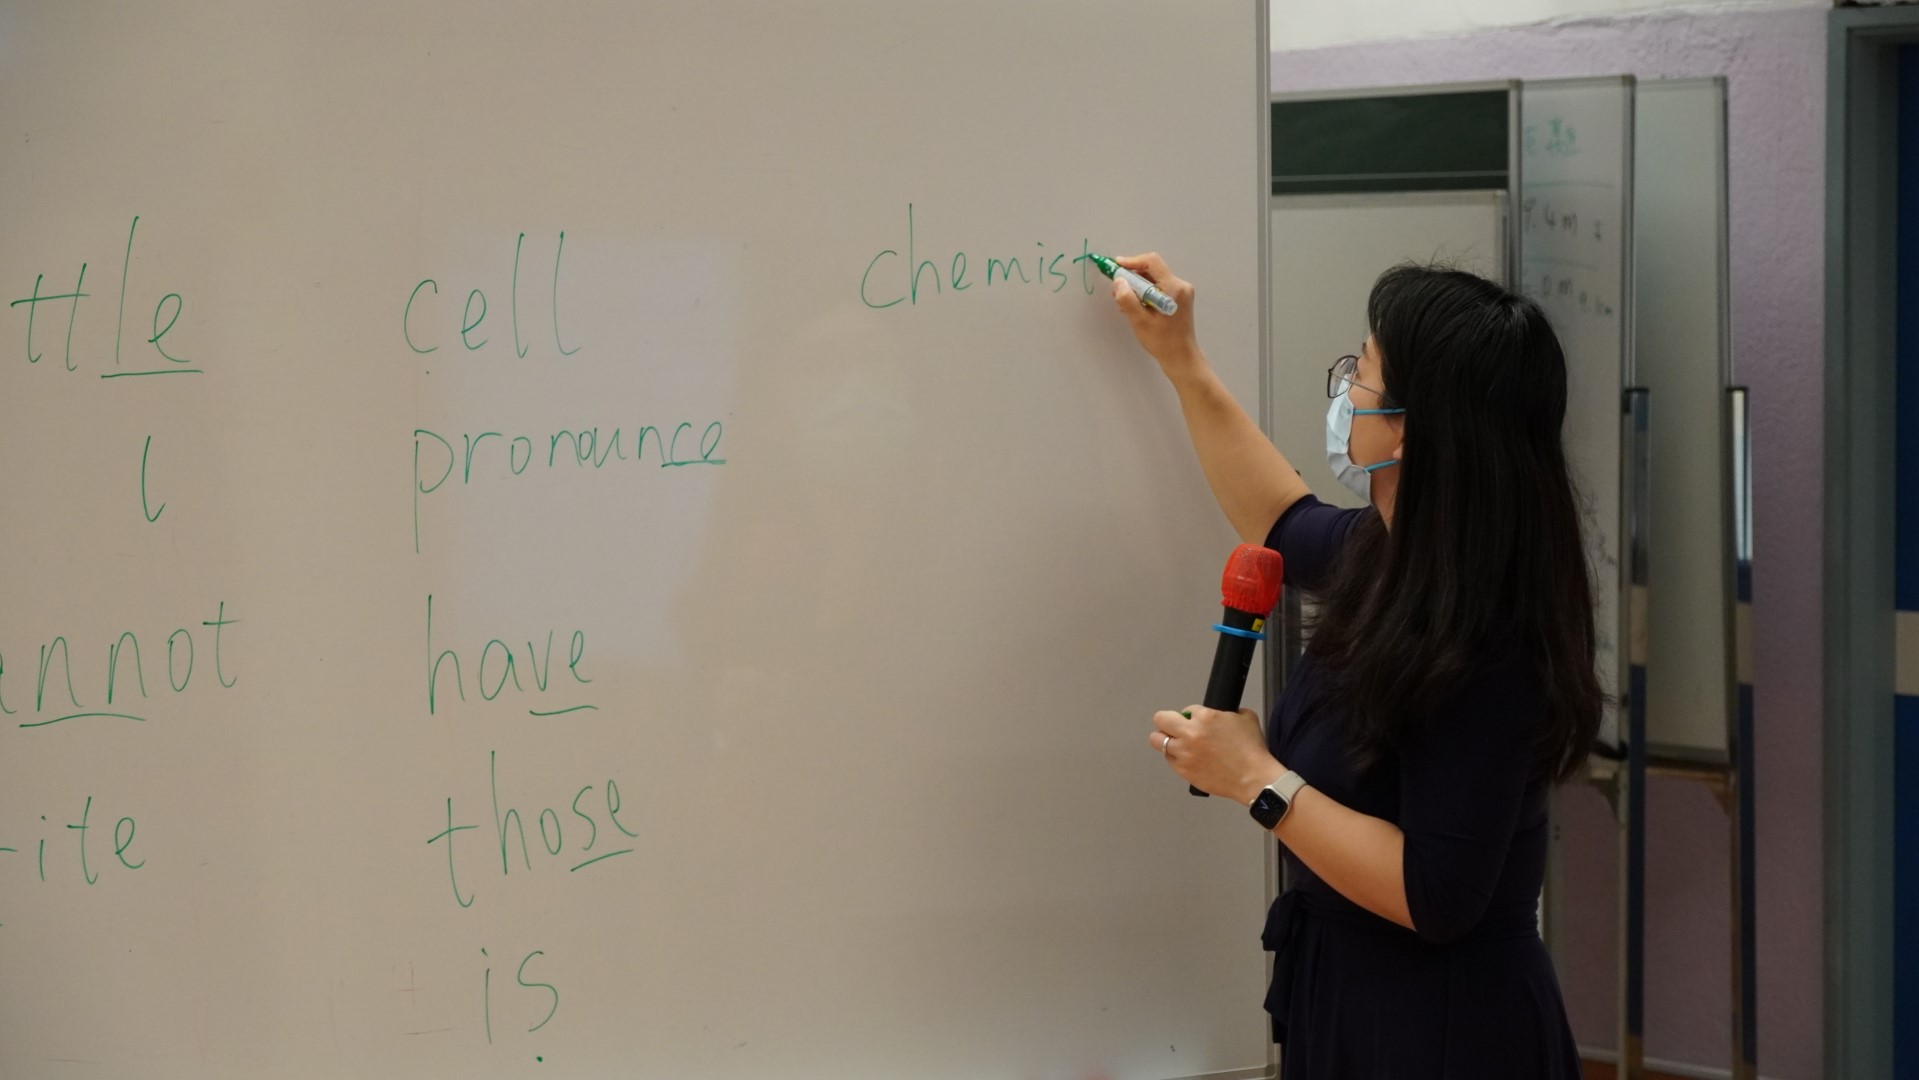 ttle
l
nnot
ite
cell
pronounce
have
those
is
chemist